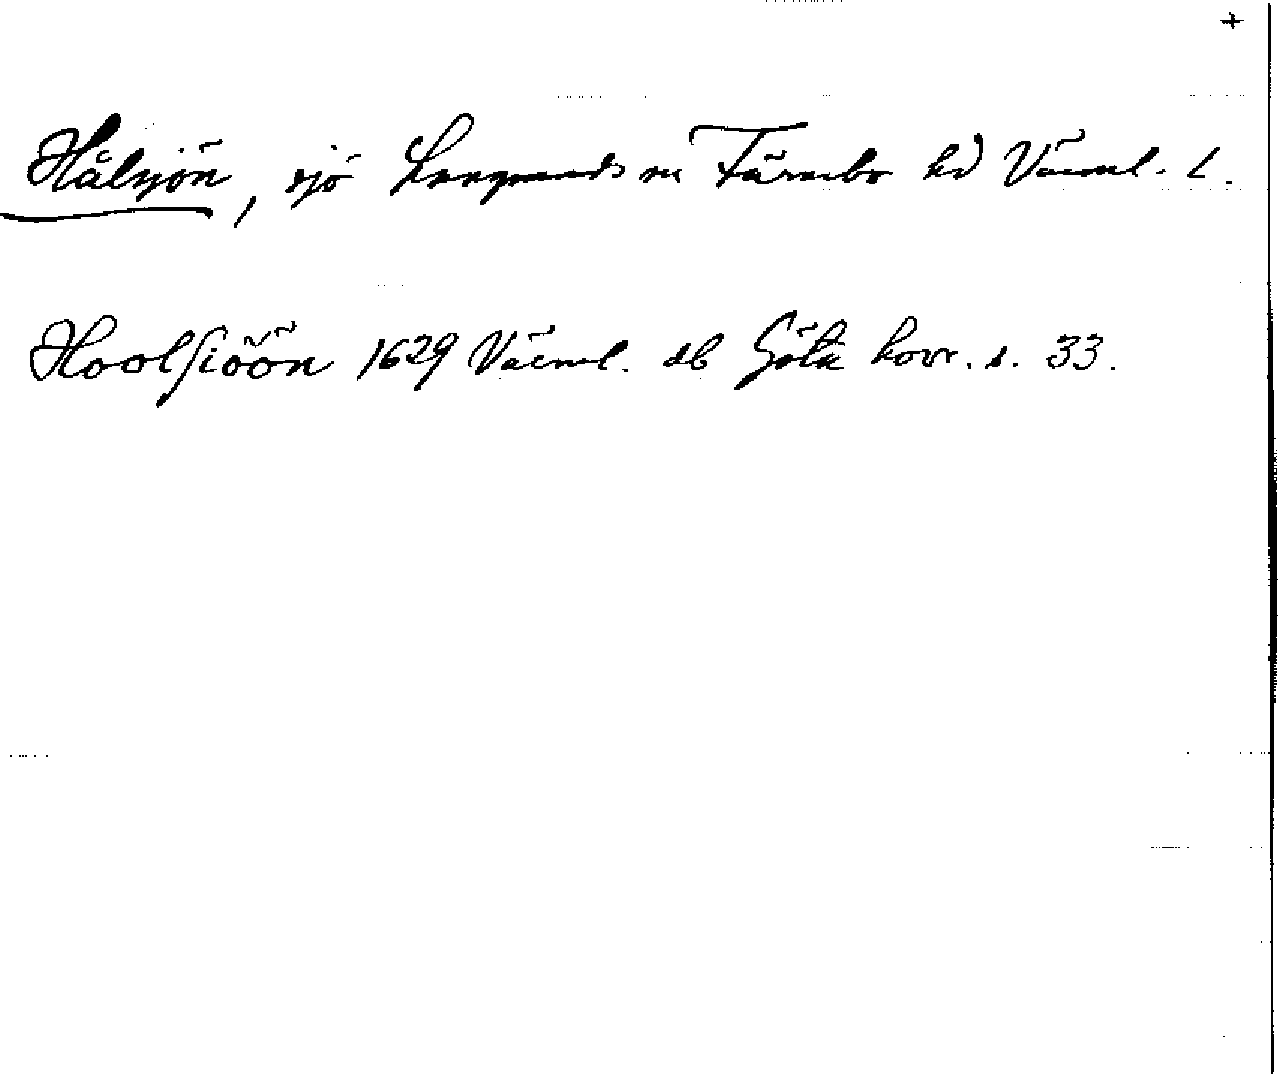 +
Hålsjön, sjö Långseruds sn Färnebo hd Värml. l.
Hoolsiöön 1629 Värml. db Göta hovr. s. 33.